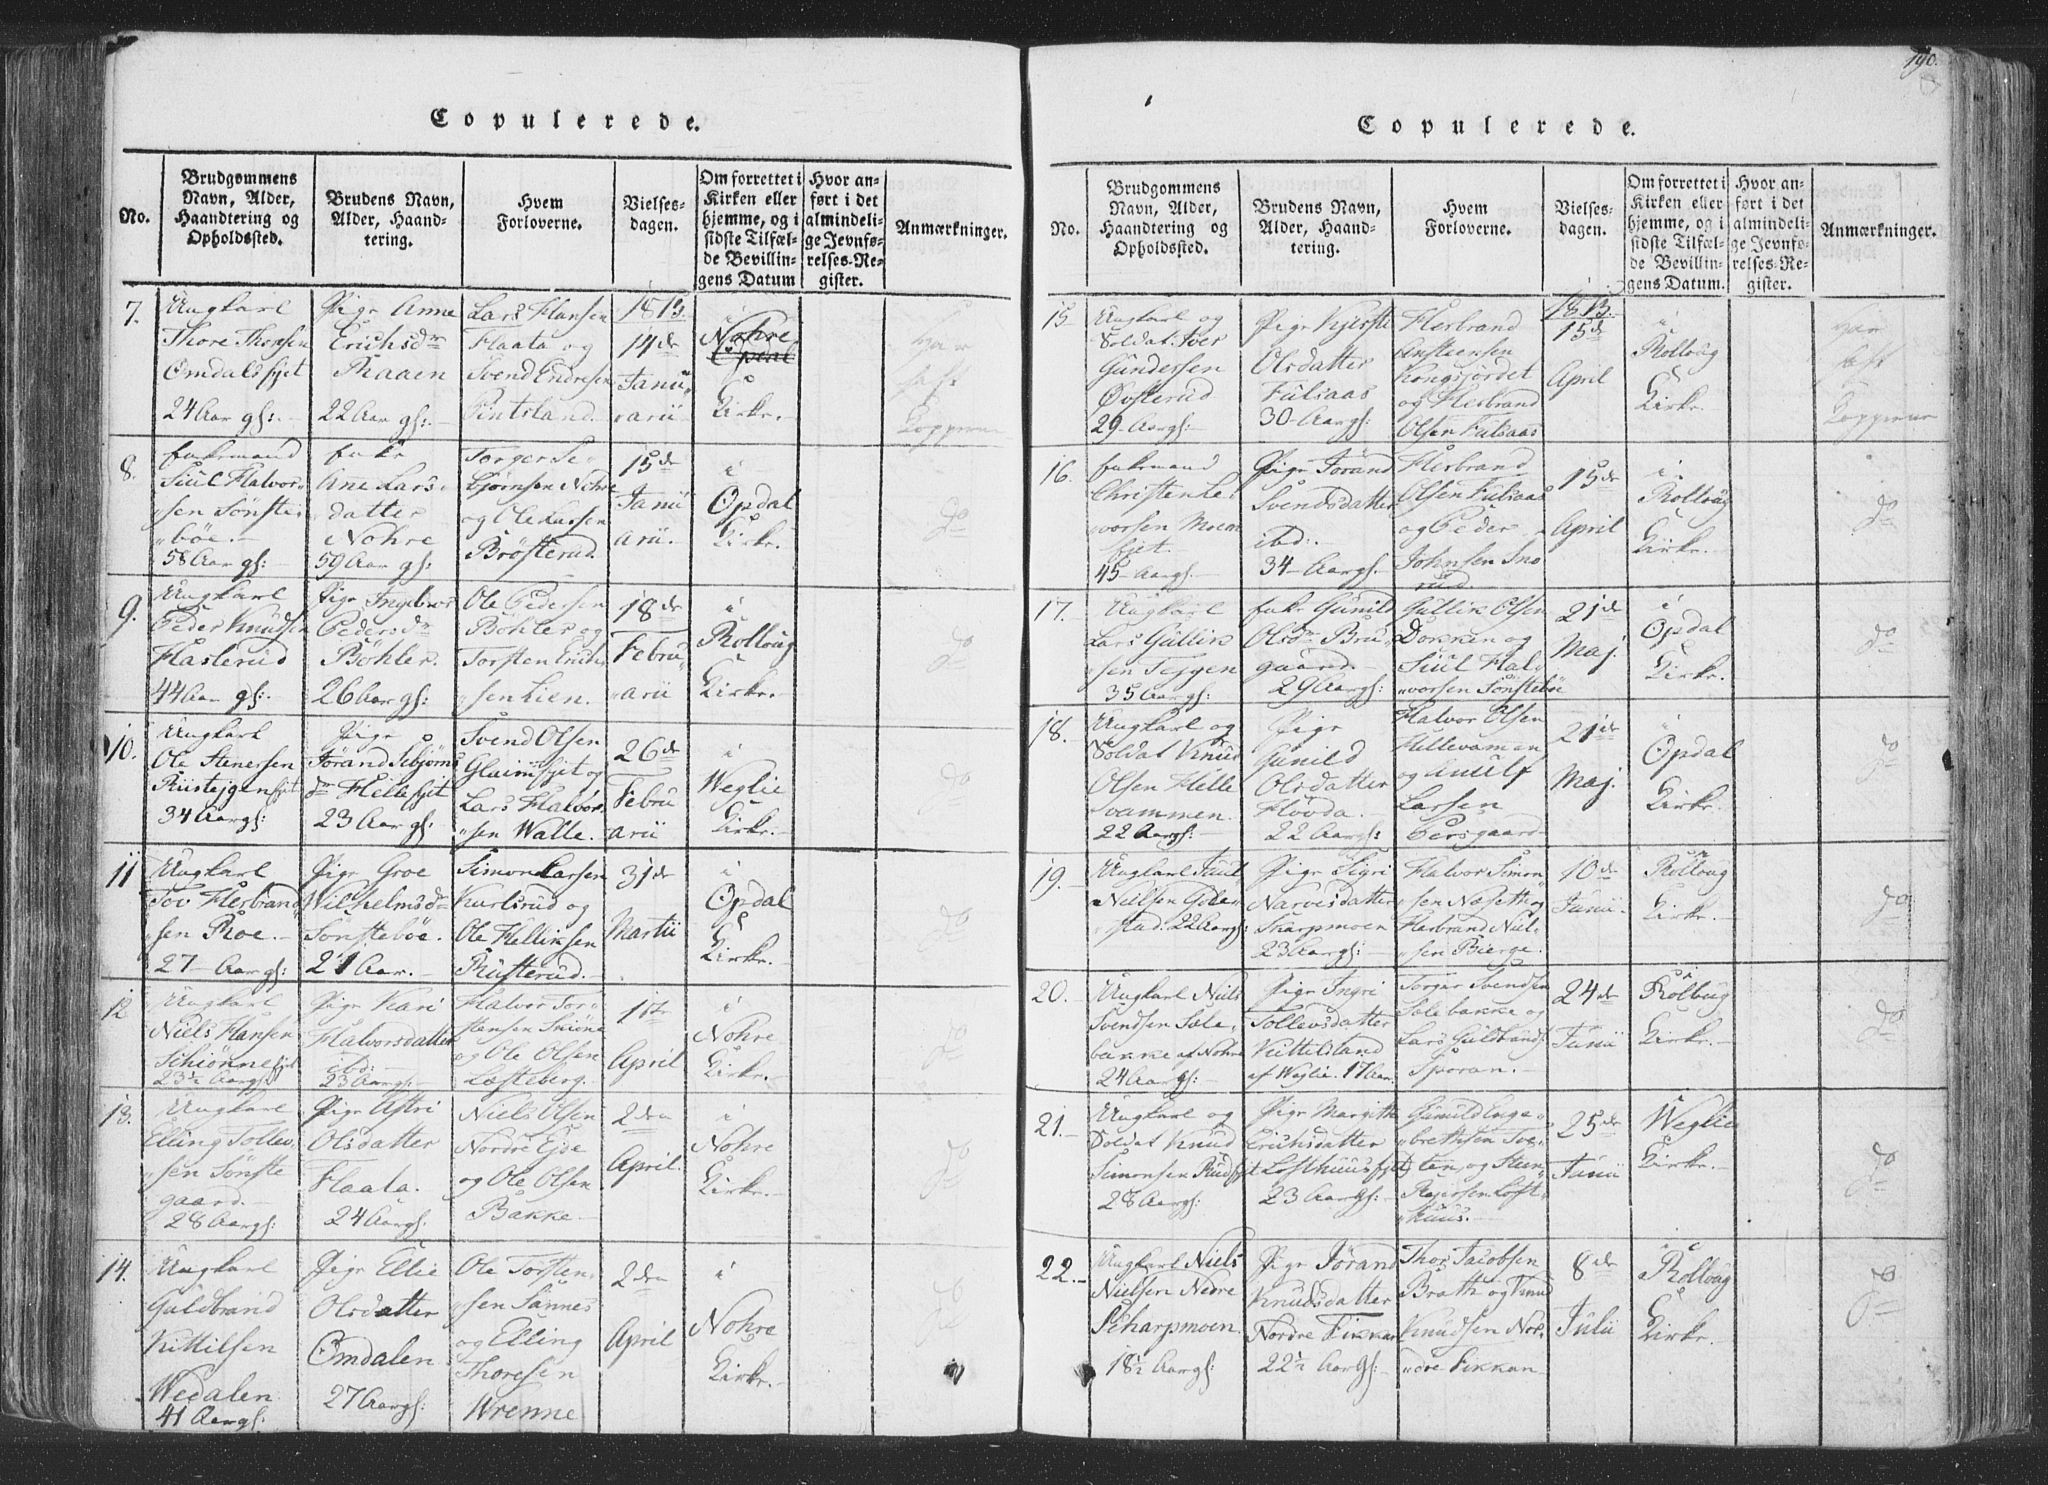 190.
Copulerede.
No.
Brudgommens
Navn, Alder,
Haandtering og
Opholdssted.
Brudens Navn,
Alder, Haand-
tering.
Hvem
Forloverne.
Vielses-
dagen.
Om forrettet i
Kirken eller
hjemme, og i
sidste Tilfæl-
de Bevillin-
gens Datum
Hvor an-
ført i det
almindeli-
ge Jevnfø-
relses-Re-
gister.
Anmærkninger.
7.
Ungkarl
Thore Thorsen
Omdalsfjet
24 Aar gl: -
Pige Anne
Erichsdr
Raaen
22 Aar gl: -
Lars Hansen
Flaata og
Svend Endresen
Pintsland.
1813.
14de
Janu
arii
i
Nohre
Opdal
Kirke. -
Har
haft
Kopperne
8.
Enkemand
Siul Halvor-
sen Sønste-
bøe. -
58 Aar gl:
Enke
Ane Lars-
datter
Nohre
59 Aar gl:
Torger Se-
bjørnsen Nohre
og Ole Larsen
Brøsterud.
15de
Janu
arii.
i
Opdal
Kirke.
do
9.
Ungkarl
Peder Knudsen
Haslerud
44 Aar gl: -
Pige Ingebor
Pedersdr
Bøhler.
26 Aar gl:
Ole Pedersen
Bøhler og
Torsten Erich-
sen Lien.
18de
Febru
arii
i
Rolloug
Kirke. -
do
10.
Ungkarl
Ole Stenersen
Riistejgensfjet
34 Aar gl:
Pige
Jørand Sebjørns
dr Hellesfjet
23 Aar gl:
Svend Olsen
Glaimsfjet og
Lars Halvor-
sen Walle.
26de
Febru
arii
i
Weglie
Kirke. -
do
11
Ungkarl
Tov Herbrand-
sen Roe. -
27 - Aar gl:
Pige Groe
Wilhelmsdr
Sønstebøe.
21 Aar. -
Simon Larsen
Kurlsrud og
Ole Helliksen
Rusterud.
31de
Martii
i
Opdal
Kirke. -
do
12
Ungkarl
Niels Hansen
Schiønnefjet
23½ Aar gl:
Pige Kari
Halvorsdatter
ibd:
23 Aar gl:
Halvor Tor-
stensen Skiøne
og Ole Olsen
Løsteberg.
1ste
April
i
Nohre
Kirke. -
do
13.
Ungkarl
Elling Tollev-
sen Sønste
gaard. -
28 Aar gl:
Pige Astri
Olsdatter
Flaata.
24 Aar gl:
Niels Olsen
Nordre Ejde
og Ole Olsen
Bakke. -
2den
April.
i
Nohre
Kirke. -
do
14.
Ungkarl
Guldbrand
Kittilsen
Wedalen
41 Aar gl:
Pige Ellie
Olsdatter
Omdalen
27 Aar gl:
Ole Torsten-
sen Sannes
og Elling
Thoresen
Wrenne
2den
April
i
Nohre
Kirke. -
do
Copulerede.
No.
Brudgommens
Navn, Alder,
Haandtering og
Opholdssted.
Brudens Navn,
Alder, Haand-
tering.
Hvem
Forloverne.
Vielses-
dagen.
Om forrettet i
Kirken eller
hjemme, og i
sidste Tilfæl-
de Bevillin-
gens Datum.
Hvor an-
ført i det
almindeli-
ge Jevnfø-
relses-Re-
gister.
Anmærkninger.
15
Ungkarl og
Soldat Iver
Gundersen
Øvsterud
29 Aar gl:
Pige Kjersti
Olsdatter
Fulsaas
30 - Aar gl:
Herbrand
Ansteensen
Kongsjordet
og Herbrand
Olsen Fulsaas
1813.
15de
April
i
Rolloug
Kirke. -
Har
haft
Kopperne
16.
Enkemand
Christen Le-
vorsen Moen
fjet.
45 - Aar gl. -
Pige Jørand
Svendsdatter
ibd:
34 - Aar gl.
Herbrand
Olsen Fulsaas
og Peder
Johnsen Sno
rud.
15de
April
i
Rolloug
Kirke. -
do
17.
Ungkarl
Lars Gullik
sen Teggen
35 Aar gl:
Enke Gunild
Olsdr Bru-
gaard. -
29 Aar gl:
Gullik Olsen
Dokken og
Siul Hal-
vorsen Sønstebø
21de
Maj.
i
Opdal
Kirke. -
do
18.
Ungkarl og
Soldat Knud
Olsen Helle
vammen.
22 Aar gl:
Pige
Gunild
Olsdatter
Hovda.
22 Aar gl:
Halvor Olsen
Hellevamen
og Anulf
Larsen
Persgaard
21de
Maj.
i
Opdal
Kirke. -
do
19.
Ungkarl Juul
Nielsen Gole-
stad. 22 Aar gl:
Pige Sigri
Narvesdatter
Skarpmoen
23 Aar gl:
Halvor Simon
sen Næseth og
Herbrand Niel-
sen Bierge.
10de
Junii
i
Rolloug
Kirke. -
do
20.
Ungkarl Niels
Svendsen Søle-
bakke af Nohre
24 Aar gl:
Pige Ingri
Tollevsdatter
Kittilsland
af Weglie. 17 Aar.
Torger Svendsen
Sølebakke og
Lars Guldbrands
Sporan. -
24de
Junii
i
Rolloug
Kirke. -
do
21. -
Ungkarl og
Soldat Knud
Simonsen Rudsfjet
28 Aar gl:
Pige Margith
Erichsdatter
Lofthuusfjet
23 Aar gl:
Gunuld Enge-
brethsen Tve-
ten, og Steen
Rejersen Loft-
huus. -
25de
Junii
i
Weglie
Kirke. -
do
22. -
Ungkarl Niels
Nielsen Nedre
Scharpmoen
18½ Aar gl:
Pige Jørand
Knudsdatter
Nordre Fikkan
22½ Aar gl:
Thor Jacobsen
Brath og Knud
Knudsen Nor-
dre Fikkan
8de
Julii
i
Rolloug
Kirke. -
do